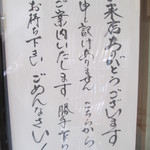 ご来店ありがとうございます
申し訳ありません こちらから
ご案内いたします 勝手乍ら
お持ち下さい ごめんなさい!